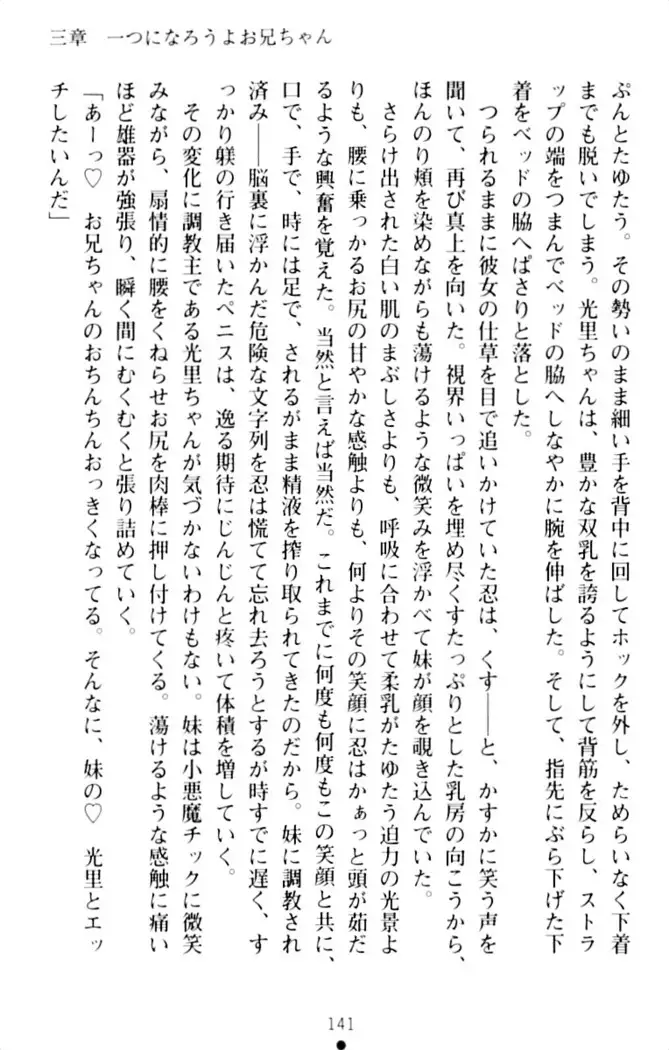 三章　一つになろうよお兄ちゃん
ぷんとたゆたう。その勢いのまま細い手を背中に回してホックを外し、ためらいなく下着
までも脱いでしまう。光里ちゃんは、豊かな双乳を誇るようにして背筋を反らし、ストラ
ップの端をつまんでベッドの脇へしなやかに腕を伸ばした。そして、指先にぶら下げた下
着をベッドの脇へぱさりと落とした。
　つられるままに彼女の仕草を目で追いかけていた忍は、くす――と、かすかに笑う声を
聞いて、再び真上を向いた。視界いっぱいを埋め尽くすたっぷりとした乳房の向こうから、
ほんのり頬を染めながらも蕩けるような微笑みを浮かべて妹が顔を覗き込んでいた。
　さらけ出された白い肌のまぶしさよりも、呼吸に合わせて柔乳がたゆたう迫力の光景よ
りも、腰に乗っかるお尻の甘やかな感触よりも、何よりその笑顔に忍はかぁっと頭が茹だ
るような興奮を覚えた。当然と言えば当然だ。これまでに何度も何度もこの笑顔と共に、
口で、手で、時には足で、されるがまま精液を搾り取られてきたのだから。妹に調教され
済み――脳裏に浮かんだ危険な文字列を忍は慌てて忘れ去ろうとするが時すでに遅く、す
っかり躾の行き届いたペニスは、逸る期待にじんじんと疼いて体積を増していく。
　その変化に調教主である光里ちゃんが気づかないわけもない。妹は小悪魔チックに微笑
みながら、扇情的に腰をくねらせお尻を肉棒に押し付けてくる。蕩けるような感触に痛い
ほど雄器が強張り、瞬く間にむくむくと張り詰めていく。
「あーっ♡　お兄ちゃんのおちんちんおっきくなってる。そんなに、妹の♡　光里とエッ
チしたいんだ」
141